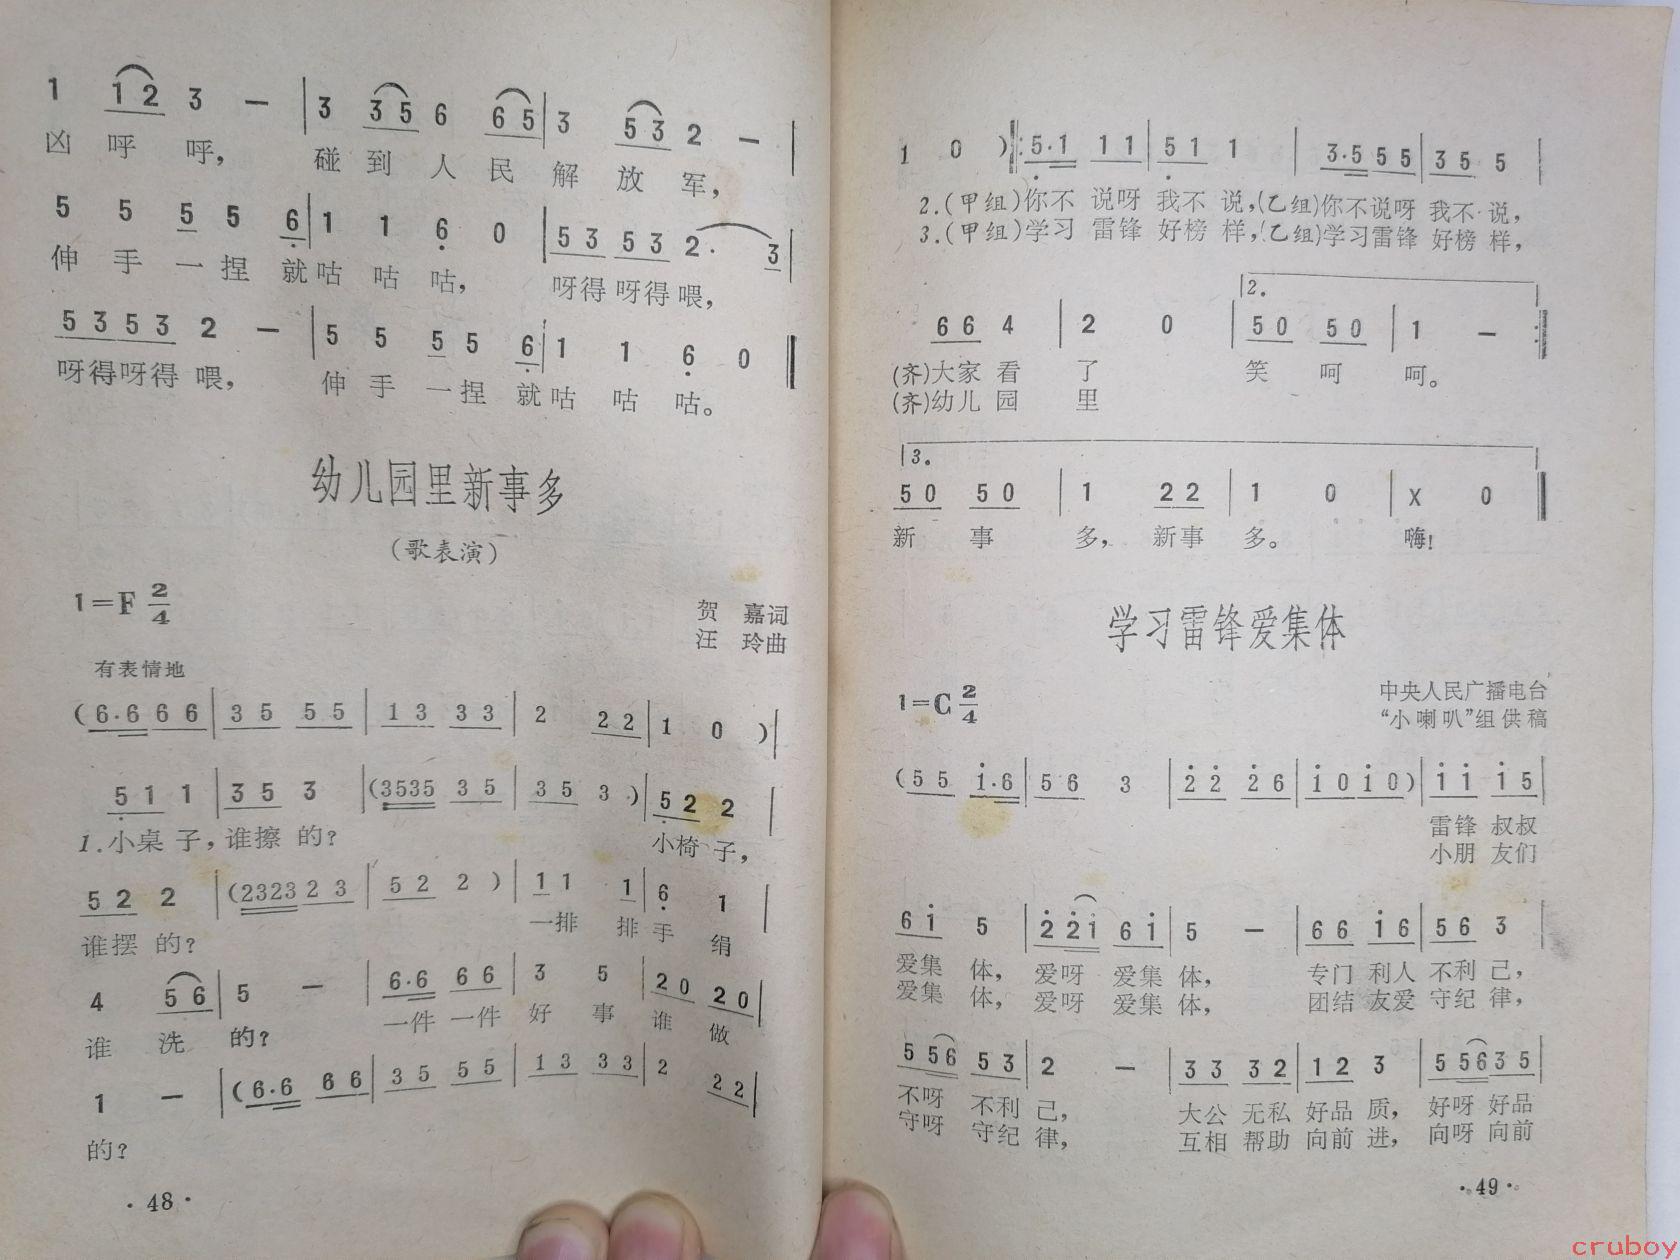 1 1 2 3 — | 3 3 5 6 6 5 | 3 5 3 2 — |
凶 呼 呼， 碰 到 人 民 解 放 军，
5 5 5 5 6 | 1 1 6 0 | 5 3 5 3 2 · 3 |
伸 手 一 捏 就 咕 咕 咕， 呀得 呀得 喂，
5 3 5 3 2 — | 5 5 5 5 6 | 1 1 6 0 ‖
呀得呀得 喂， 伸 手 一 捏 就 咕 咕 咕。
幼儿园里新事多
（歌表演）
1＝F 2/4
贺 嘉词
汪 玲曲
有表情地
（6·6 6 6 | 3 5 5 5 | 1 3 3 3 | 2 2 2 | 1 0 ）|
5 1 1 | 3 5 3 | （3535 3 5 | 3 5 3 ）| 5 2 2 |
1.小桌 子，谁擦 的？ 小椅 子，
5 2 2 | （2323 2 3 | 5 2 2 ）| 1 1 1 | 6 1 |
谁摆 的？ 一排 排 手 绢
4 5 6 | 5 — | 6·6 6 6 | 3 5 | 2 0 2 0 |
谁 洗 的？ 一件 一件 好 事 谁 做
1 — | （6·6 6 6 | 3 5 5 5 | 1 3 3 3 | 2 2 2 |
的？
· 48 ·
1 0 ）‖: 5·1 1 1 | 5 1 1 | 3·5 5 5 | 3 5 5 |
2.（甲组）你不 说呀 我不 说，（乙组）你不说呀 我不 说，
3.（甲组）学习 雷锋 好榜 样，（乙组）学习雷锋 好榜 样，
2.
6 6 4 | 2 0 | 5 0 5 0 | 1 — :‖
（齐）大家 看 了 笑 呵 呵。
（齐）幼儿 园 里
3.
5 0 5 0 | 1 2 2 | 1 0 | X 0 ‖
新 事 多， 新事 多。 嗨！
学习雷锋爱集体
1＝C 2/4
中央人民广播电台
“小喇叭”组供稿
（5 5 i·6 | 5 6 3 | 2̇ 2̇ 2̇ 6 | i 0 i 0 ）| i i i 5 |
雷锋 叔叔
小朋 友们
6 i 5 | 2̇ 2̇ i 6 i | 5 — | 6 6 i 6 | 5 6 3 |
爱集 体， 爱呀 爱集 体， 专门 利人 不利 己，
爱集 体， 爱呀 爱集 体， 团结 友爱 守纪 律，
5 5 6 5 3 | 2 — | 3 3 3 2 | 1 2 3 | 5 5 6 3 5 |
不呀 不利 己， 大公 无私 好品 质， 好呀 好品
守呀 守纪 律， 互相 帮助 向前 进， 向呀 向前
· 49 ·
cruboy